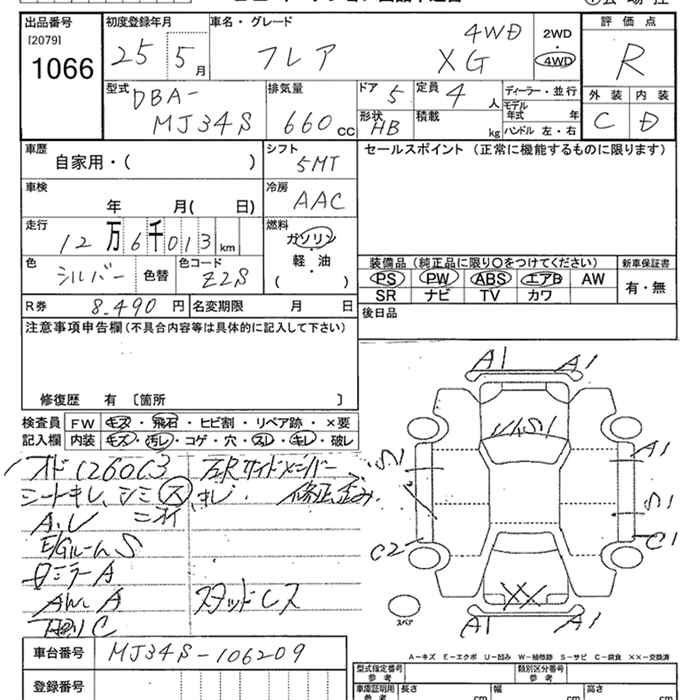 出品番号 初度登録年月 車名・グレード 2WD 評価点
[2079] 25 5月 フレア 4WD XG 4WD R
1066 外装 内装
型式 排気量 ドア 5 定員 4人 ディーラー・並行 C D
DBA- モデル年式 年
MJ34S 660cc 形状 HB 積載 kg ハンドル 左・右
車歴 シフト セールスポイント (正常に機能するものに限ります)
自家用・( ) 5MT
車検 冷房
年 月( 日) AAC
走行 燃料
12万6千013km ガソリン
色 色コード 軽・油
シルバー 色替 Z2S ( )
装備品(純正品に限り○をつけてください) 新車保証書
PS PW ABS エアB AW 有・無
SR ナビ TV カワ
R券 8.490円 名変期限 月 日
後日品
注意事項申告欄(不具合内容等は具体的に記入して下さい)
修復歴 有 〔箇所 〕
検査員 FW キズ・飛石・ヒビ割・リペア跡・×要
記入欄 内装 キズ・汚レ・コゲ・穴・スレ・キレ・破レ
シートキレ、シミ
A.U
E/Gルーム S
ミラー A
スタッドレス
A1 A1
A1
S1
C2 C1
XX
A1 A1
スペア
A-キズ E-エクボ U-凹み W-補修跡 S-サビ C-腐食 ××-交換済
車台番号 MJ34S-106209
型式指定番号 参考 類別区分番号 参考
登録番号 車庫証明用 参考 長さ cm 幅 cm 高さ cm